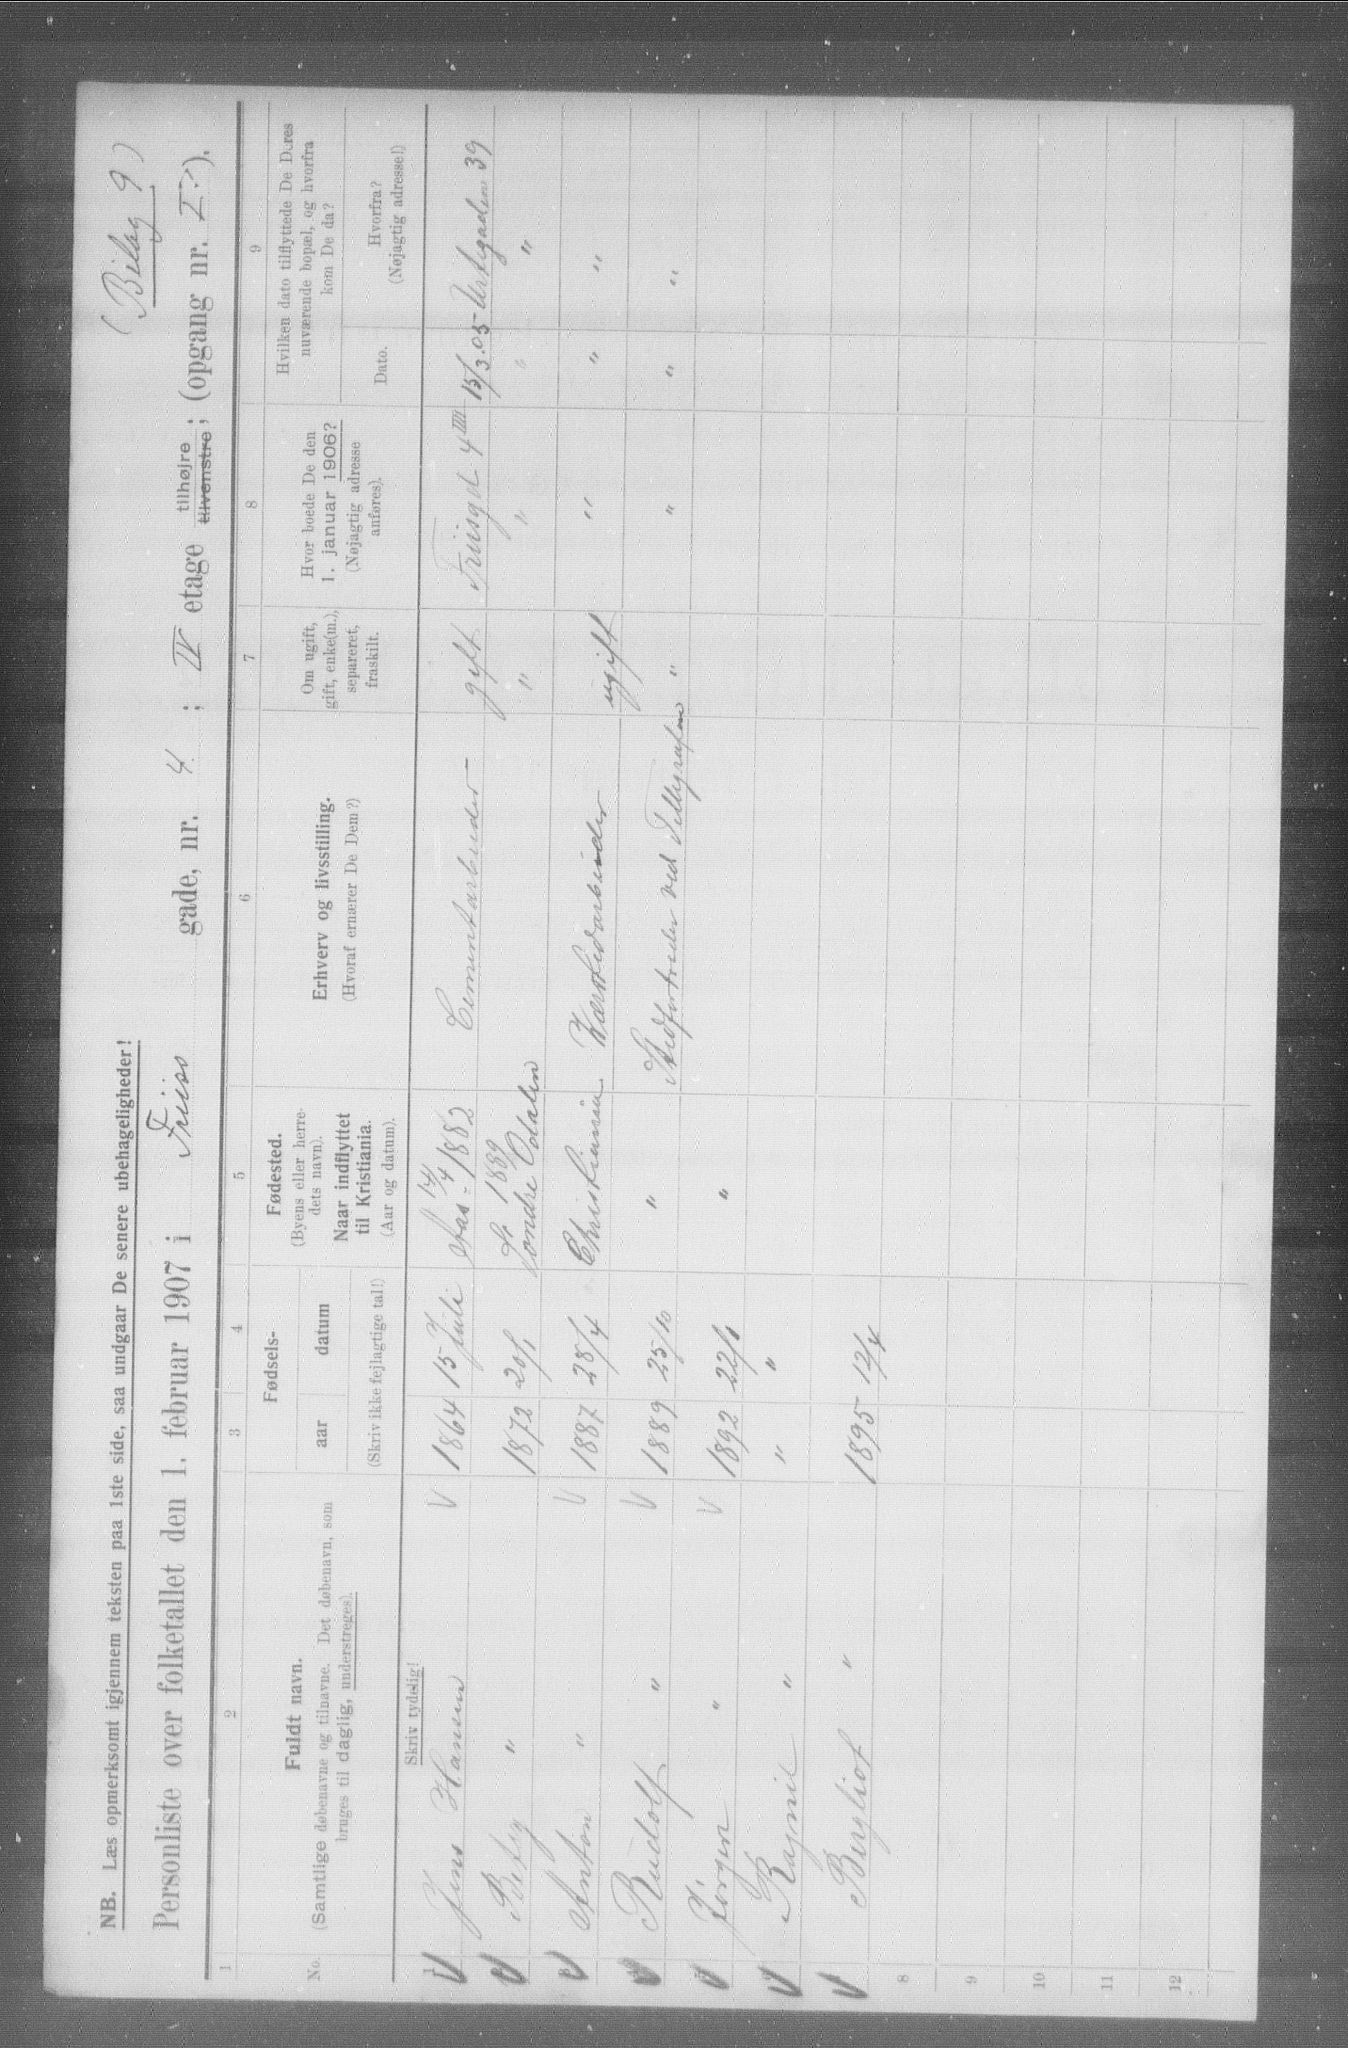 (Bilag 9)
NB. Læs opmerksomt igjennem teksten paa 1ste side, saa undgaar De senere ubehageligheder!
Personliste over folketallet den 1. februar 1907 i Friiso gade, nr. 4 ; IV etage tilhøjre tilvenstre ; (opgang nr. I ).
1 2 3 4 5 6 7 8 9
No.
Fuldt navn.
(Samtlige døbenavne og tilnavne. Det døbenavn, som
bruges til daglig, understreges).
Fødsels-
aar datum
(Skriv ikke fejlagtige tal!)
Fødested.
(Byens eller herre-
dets navn).
Naar indflyttet
til Kristiania.
(Aar og datum).
Erhverv og livsstilling.
(Hvoraf ernærer De Dem?)
Om ugift,
gift, enke(m.),
separeret,
fraskilt.
Hvor boede De den
1. januar 1906?
(Nøjagtig adresse
anføres).
Hvilken dato tilflyttede De Deres
nuværende bopæl, og hvorfra
kom De da?
Dato.
Hvorfra?
(Nøjagtig adresse!)
Skriv tydelig!
1 Jens Hansen V 1864 15 Juli Aas 14/4 1882 Cementarbeider gift Friisgd 4 III 15/3.05 Urtegaden 39
Betsy " 1872 20/1 1889 Søndre Odalen " " " "
Anton " V 1887 28/4 Christiania Værkstedarbeider ugift " " "
Rudolf " V 1889 25/10 " Stedfortreder ved Tellegrafen " " " "
Jørgen " V 1892 22/1 "
Ragnil " " "
Bergliot " 1895 12/4
8
9
10
11
12